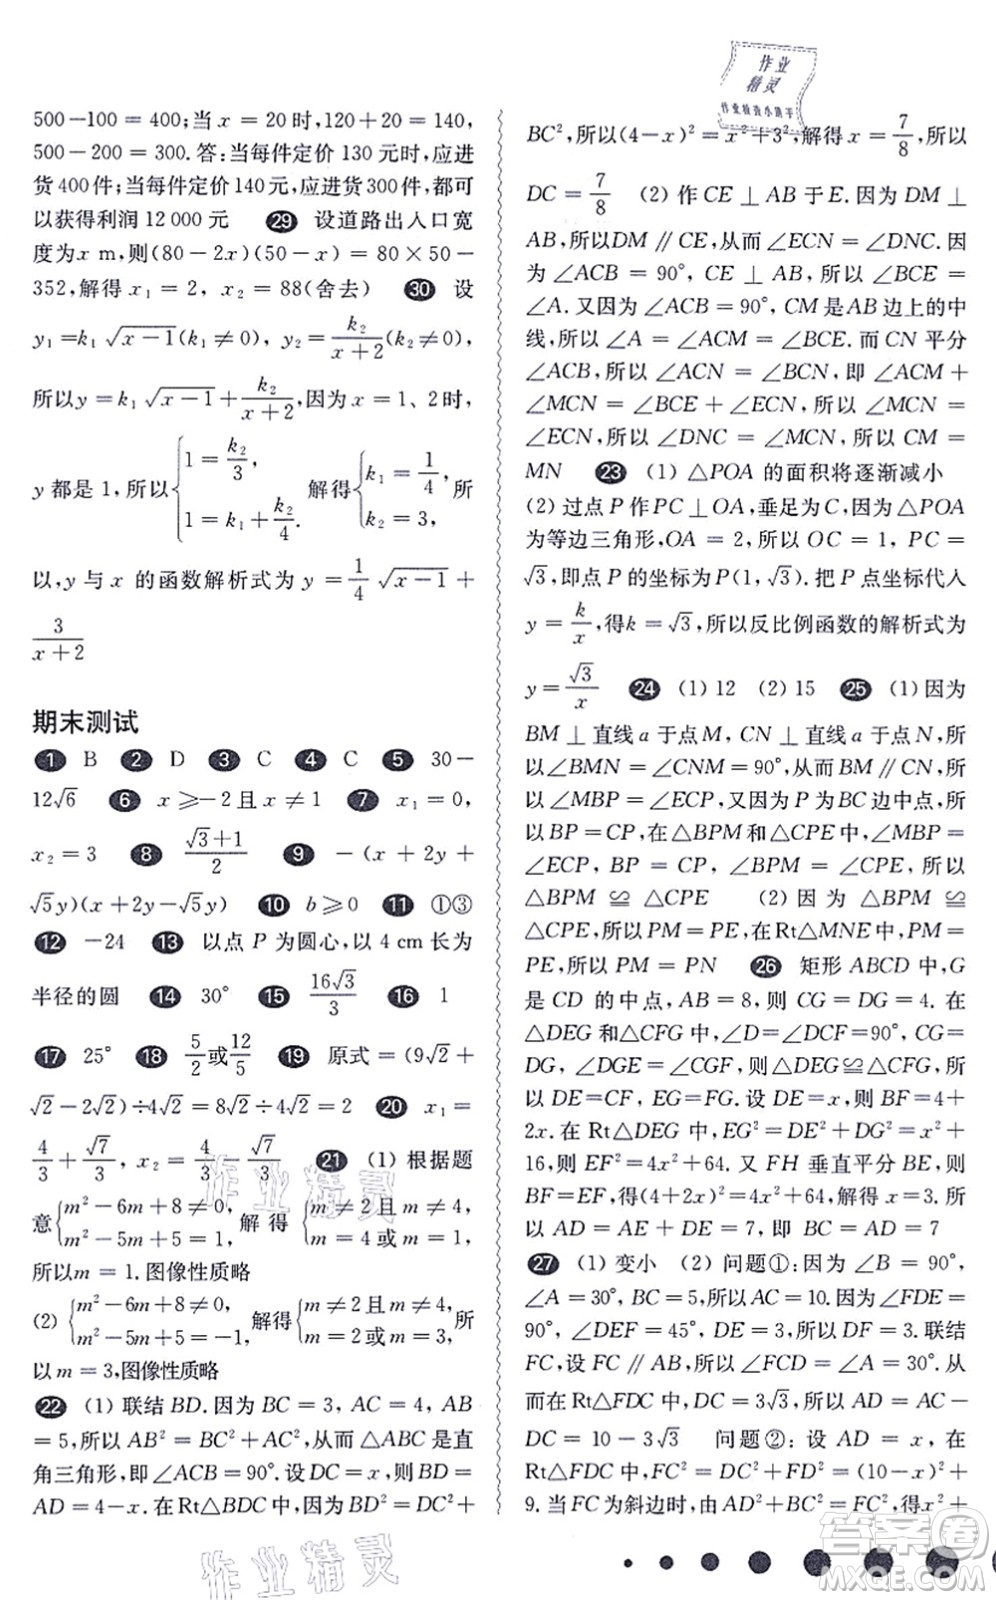 500－100 = 400；当 x = 20 时，120＋20 = 140，
500－200 = 300. 答：当每件定价 130 元时，应进
货400件；当每件定价140元，应进货300件，都可
以获得利润 12 000 元 29 设道路出入口宽
度为 x m，则(80－2x)(50－x) = 80×50－
352，解得 x₁ = 2，x₂ = 88(舍去) 30 设
y₁ =k₁√(x－1)(k₁≠0)，y₂ = k₂/(x＋2)(k₂≠0)，
所以y = k₁√(x－1)＋k₂/(x＋2)，因为 x = 1、2 时，
y 都是 1，所以{1 = k₂/3， 1 = k₁＋k₂/4. 解得{k₁ = 1/4， k₂ = 3， 所
以，y 与 x 的函数解析式为 y = 1/4 √(x－1)＋
3/(x＋2)
期末测试
1 B 2 D 3 C 4 C 5 30－
12√6 6 x ≥－2且 x ≠ 1 7 x₁ = 0，
x₂ = 3 8 (√3＋1)/2 9 －(x＋2y＋
√5y)(x＋2y－√5y) 10 b≥0 11 ①③
12 －24 13 以点 P 为圆心，以 4 cm 长为
半径的圆 14 30° 15 16√3/3 16 1
17 25° 18 5/2或12/5 19 原式 = (9√2＋
√2－2√2)÷4√2 = 8√2÷4√2 = 2 20 x₁ =
4/3＋√7/3，x₂ = 4/3－√7/3 21 (1) 根据题
意{m²－6m＋8≠0， m²－5m＋5 = 1， 解得{m ≠ 2 且 m ≠ 4， m = 4或 m = 1，
所以m = 1.图像性质略
(2) {m²－6m＋8≠0， m²－5m＋5 =－1， 解得{m ≠2 且 m ≠4， m = 2 或 m = 3， 所
以 m = 3，图像性质略
22 (1) 联结 BD. 因为 BC = 3，AC = 4，AB
= 5，所以 AB² = BC²＋AC²，从而△ABC 是直
角三角形，即∠ACB = 90°. 设 DC = x，则 BD =
AD = 4－x. 在Rt△BDC 中，因为 BD² = DC²＋
BC²，所以(4－x)² = x²＋3²，解得 x = 7/8，所以
DC = 7/8 (2) 作 CE ⊥ AB 于 E. 因为 DM ⊥
AB，所以DM∥CE，从而∠ECN =∠DNC. 因
为∠ACB = 90°，CE ⊥ AB，所以∠BCE =
∠A. 又因为∠ACB = 90°，CM 是AB 边上的中
线，所以∠A =∠ACM =∠BCE. 而 CN 平分
∠ACB，所以∠ACN =∠BCN，即∠ACM＋
∠MCN =∠BCE＋∠ECN，所以∠MCN =
∠ECN，所以∠DNC =∠MCN，所以 CM =
MN 23 (1) △POA 的面积将逐渐减小
(2) 过点 P 作 PC⊥OA，垂足为C，因为△POA
为等边三角形，OA = 2，所以 OC = 1，PC =
√3，即点 P 的坐标为P(1，√3). 把 P 点坐标代入
y = k/x，得k =√3，所以反比例函数的解析式为
y = √3/x 24 (1) 12 (2) 15 25 (1)因为
BM⊥直线 a 于点 M，CN⊥直线 a于点 N，所
以∠BMN =∠CNM = 90°，从而 BM∥CN，所
以∠MBP =∠ECP，又因为 P为BC边中点，所
以 BP = CP，在△BPM和△CPE 中，∠MBP =
∠ECP，BP = CP，∠BPM =∠CPE，所以
△BPM ≌ △CPE (2) 因为△BPM ≌
△CPE，所以PM = PE，在Rt△MNE中，PN =
PE，所以 PM = PN 26 矩形 ABCD 中，G
是 CD 的中点，AB = 8，所以 CG = DG = 4. 在
△DEG 和△CFG 中，∠D=∠DCF=90°，CG=
DG，∠DGE =∠CGF，则△DEG≌△CFG，所
以 DE=CF，EG=FG. 设DE=x，则 BF=4＋
2x. 在 Rt△DEG 中，EG² = DE²＋DG² = x²＋
16，则 EF² = 4x²＋64. 又 FH 垂直平分 BE，则
BF=EF，得(4＋2x)² = 4x²＋64，解得 x=3. 所
以 AD = AE＋DE = 7，即 BC = AD = 7
27 (1) 变小 (2) 问题①：因为∠B = 90°，
∠A = 30°，BC = 5，所以AC = 10. 因为∠FDE=
90°，∠DEF = 45°，DE = 3，所以 DF = 3. 联结
FC，设 FC∥AB，所以∠FCD =∠A = 30°. 从
而在Rt△FDC 中，DC = 3√3，所以 AD = AC－
DC = 10－3√3 问题②：设 AD = x，在
Rt△FDC 中，FC² = DC²＋FD² = (10－x)²＋
9. 当FC为斜边时，由 AD²＋BC² = FC²，得x²＋
作业
精灵
作业检查小助手
作业精灵
作业精灵
答案圈
MXQE.COM